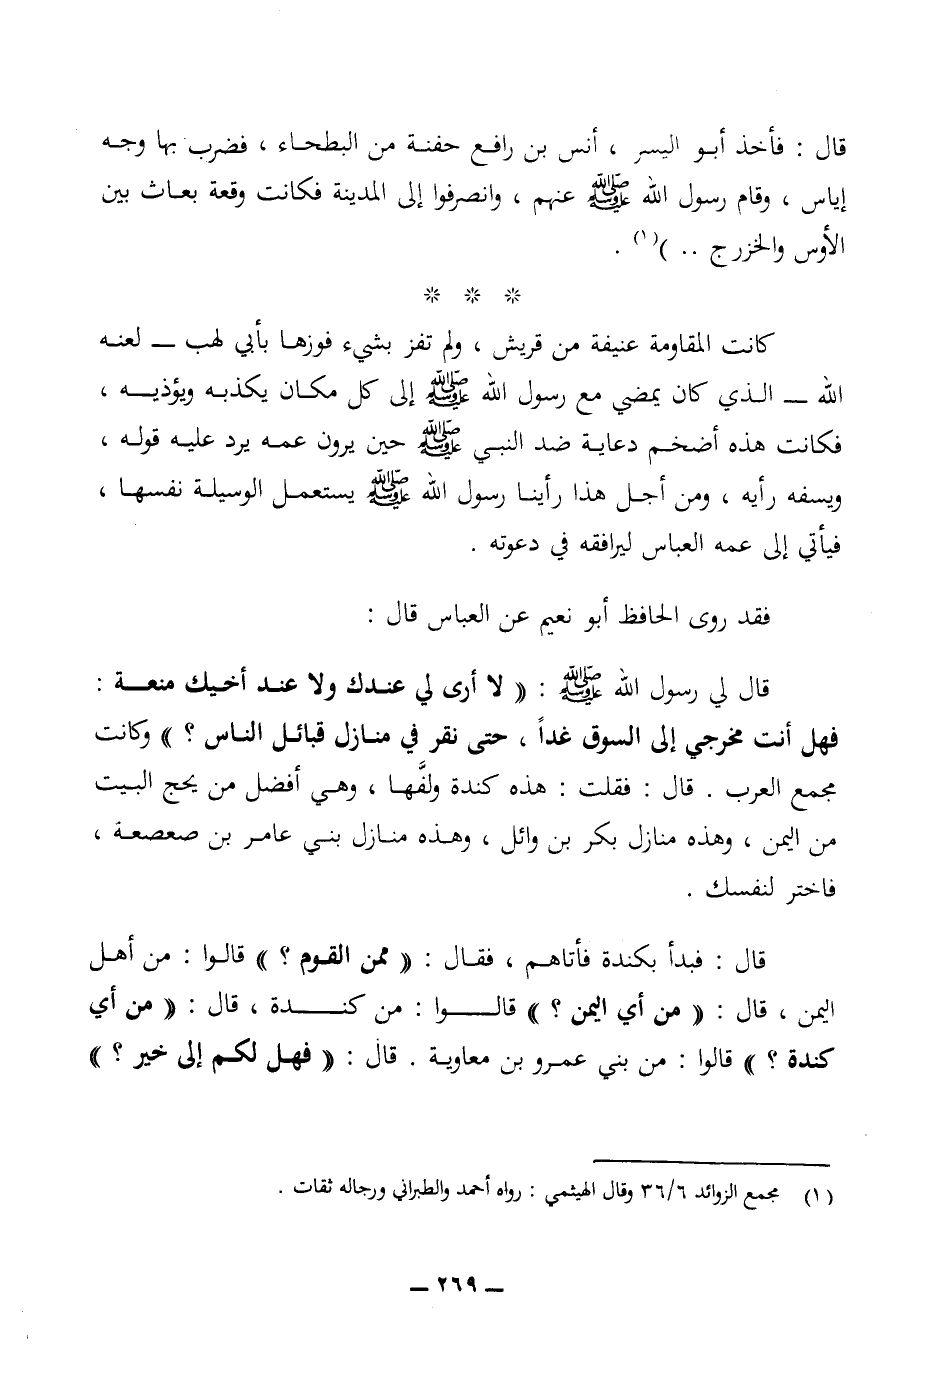 قال : فأخذ أبو اليسر ، أنس بن رافع حفنة من البطحاء ، فضرب بها وجه
إياس ، وقام رسول الله ﷺ عنهم ، وانصرفوا إلى المدينة فكانت وقعة بعاث بين
الأوس والخزرج .. )(١) .
* * *
كانت المقاومة عنيفة من قريش ، ولم تفز بشيء فوزها بأبي لهب ــ لعنه
الله ــ الذي كان يمضي مع رسول الله ﷺ إلى كل مكان يكذبه ويؤذيه ،
فكانت هذه أضخم دعاية ضد النبي ﷺ حين يرون عمه يرد عليه قوله ،
ويسفه رأيه ، ومن أجل هذا رأينا رسول الله ﷺ يستعمل الوسيلة نفسها ،
فيأتي إلى عمه العباس ليرافقه في دعوته .
فقد روى الحافظ أبو نعيم عن العباس قال :
قال لي رسول الله ﷺ : « لا أرى لي عندك ولا عند أخيك منعة :
فهل أنت مخرجي إلى السوق غداً ، حتى نقر في منازل قبائل الناس ؟ » وكانت
مجمع العرب . قال : فقلت : هذه كندة ولفَّها ، وهي أفضل من يحج البيت
من اليمن ، وهذه منازل بكر بن وائل ، وهذه منازل بني عامر بن صعصعة ،
فاختر لنفسك .
قال : فبدأ بكندة فأتاهم ، فقال : « ممن القوم ؟ » قالوا : من أهل
اليمن ، قال : « من أي اليمن ؟ » قالوا : من كندة ، قال : « من أي
كندة ؟ » قالوا : من بني عمرو بن معاوية . قال : « فهل لكم إلى خير ؟ »
(١) مجمع الزوائد ٣٦/٦ وقال الهيثمي : رواه أحمد والطبراني ورجاله ثقات .
ــ ٢٦٩ ــ